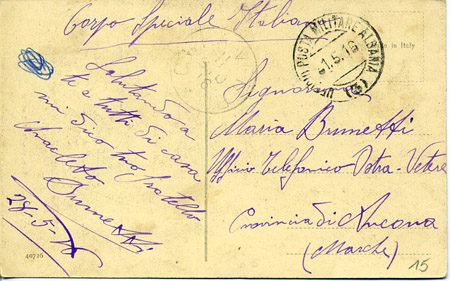 Corpo Speciale Italiano
in Italy
UFFICIO POSTA MILITARE ALBANIA
31.5.16
(2)
Salutando a
te e tutti di casa
mi dico tuo fratello
Anacleto
Brunetti
28-5-16
40716
Signora
Maria Brunetti
Ufficio Telefonico Ostra-Vetere
Provincia di Ancona
(Marche)
15